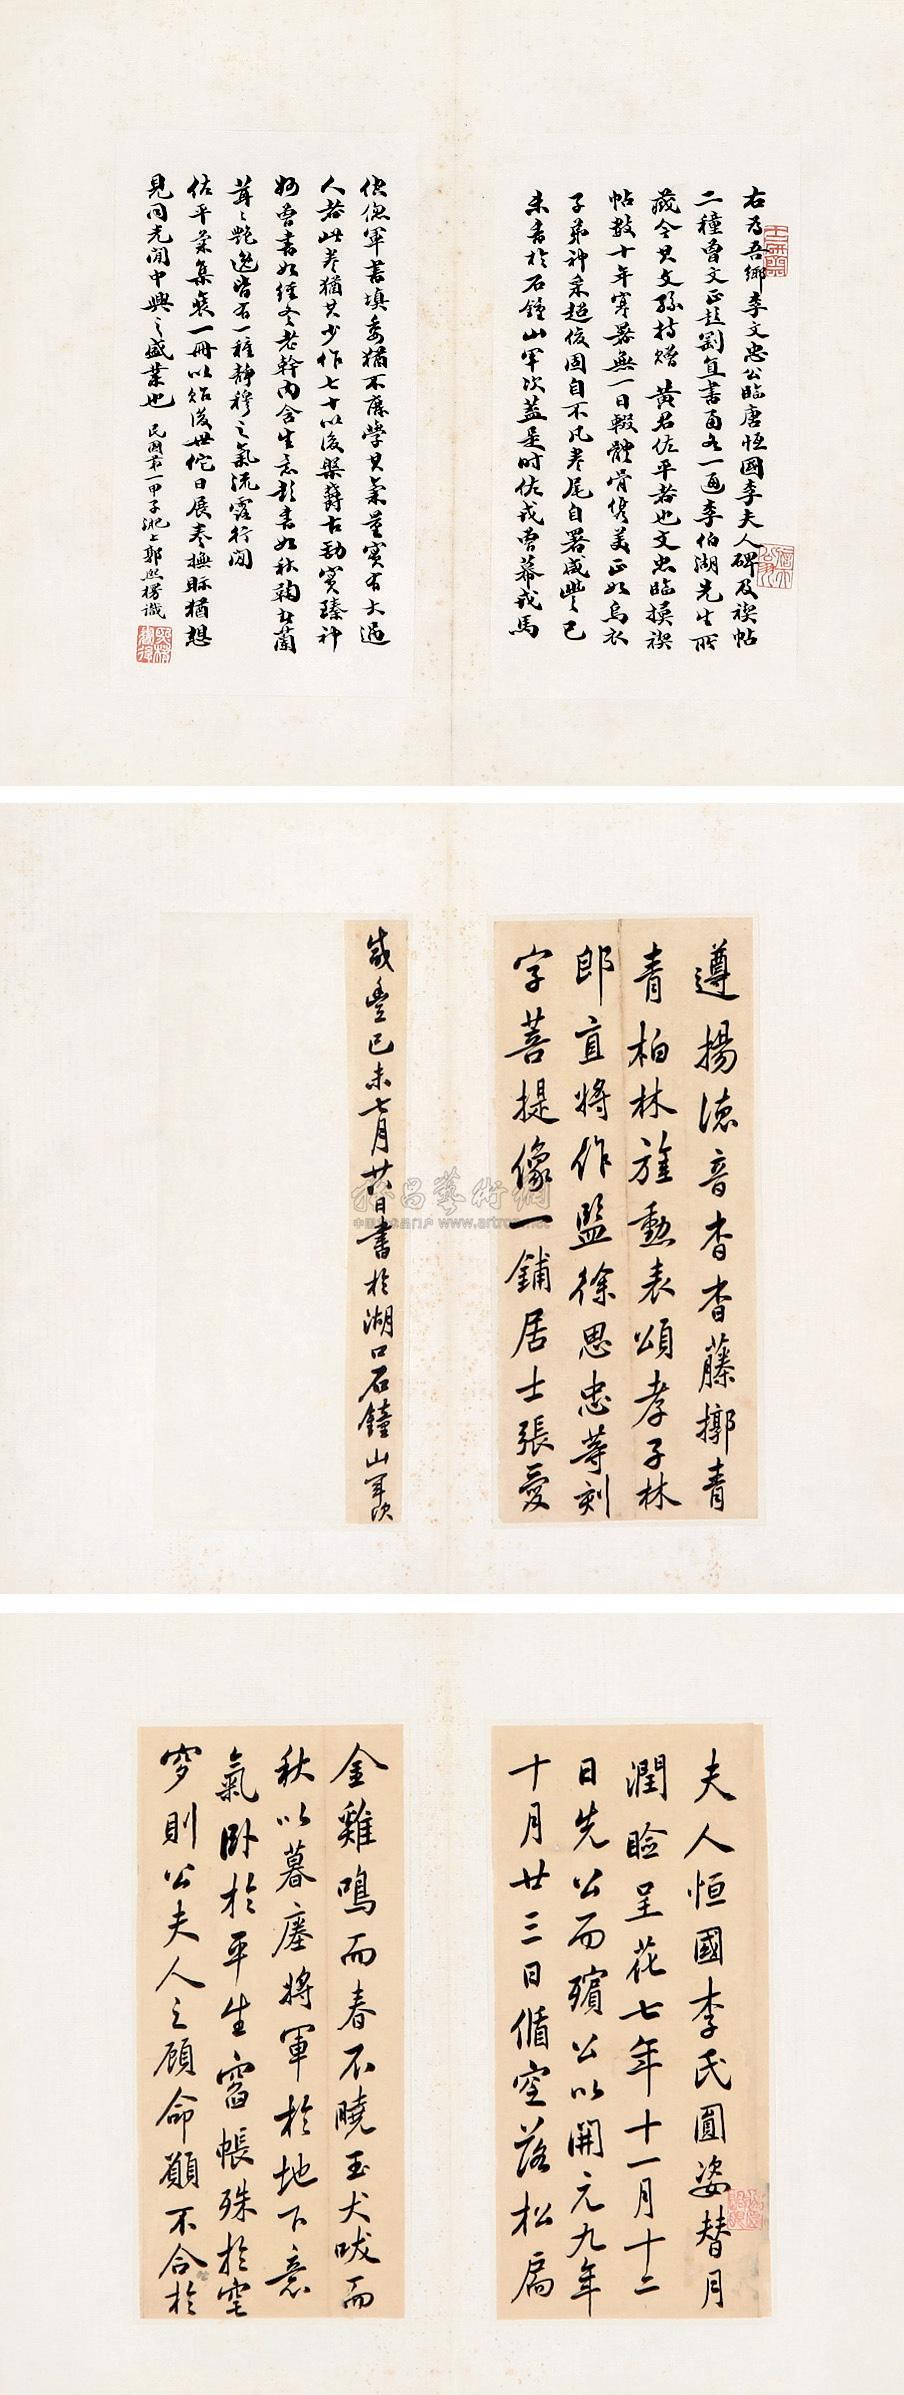 右為吾鄉李文忠公臨唐恒國李夫人碑及禊帖
二種曾文正赴劉直書面各一通李伯湖先生所
藏今其文孫持贈黃君佐平者也文忠臨摸禊
帖數十年寒暑無一日輟體骨儁美正如烏衣
子弟神采超俊固自不凡卷尾自署咸豐己
未書於石鐘山軍次蓋是時佐戎曾幕戎馬
倥傯軍書填委猶不廢學其氣量實有大過
人者此卷猶其少作七十以後槃礴古勁實臻神
妙曾書如經冬老幹內含生意彭書如秋鞠春蘭
茸茸艷逸皆有一種靜穆之氣流露行間
佐平彙集裒一冊以貽後世佗日展卷撫眎猶想
見同光間中興之盛業也 民國第一甲子淝上郭熙楞識
遵揚德音杳杳藤擲青
青柏林旌勳表頌孝子林
郎直將作監徐思忠等刻
字菩提像一鋪居士張愛
咸豐己未七月廿日書於湖口石鐘山軍次
夫人恒國李氏圓姿替月
潤臉呈花七年十一月十二
日先公而殯公以開元九年
十月廿三日循空落松扃
金雞鳴而春不曉玉犬吠而
秋以暮塵將軍於地下意
氣臥於平生窗帳殊於窀
穸則公夫人之顧命願不合於
www.artron.net